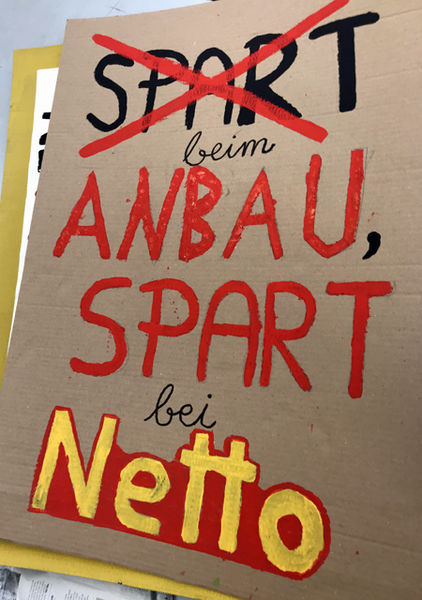 SPART
beim
ANBAU,
SPART
bei
Netto